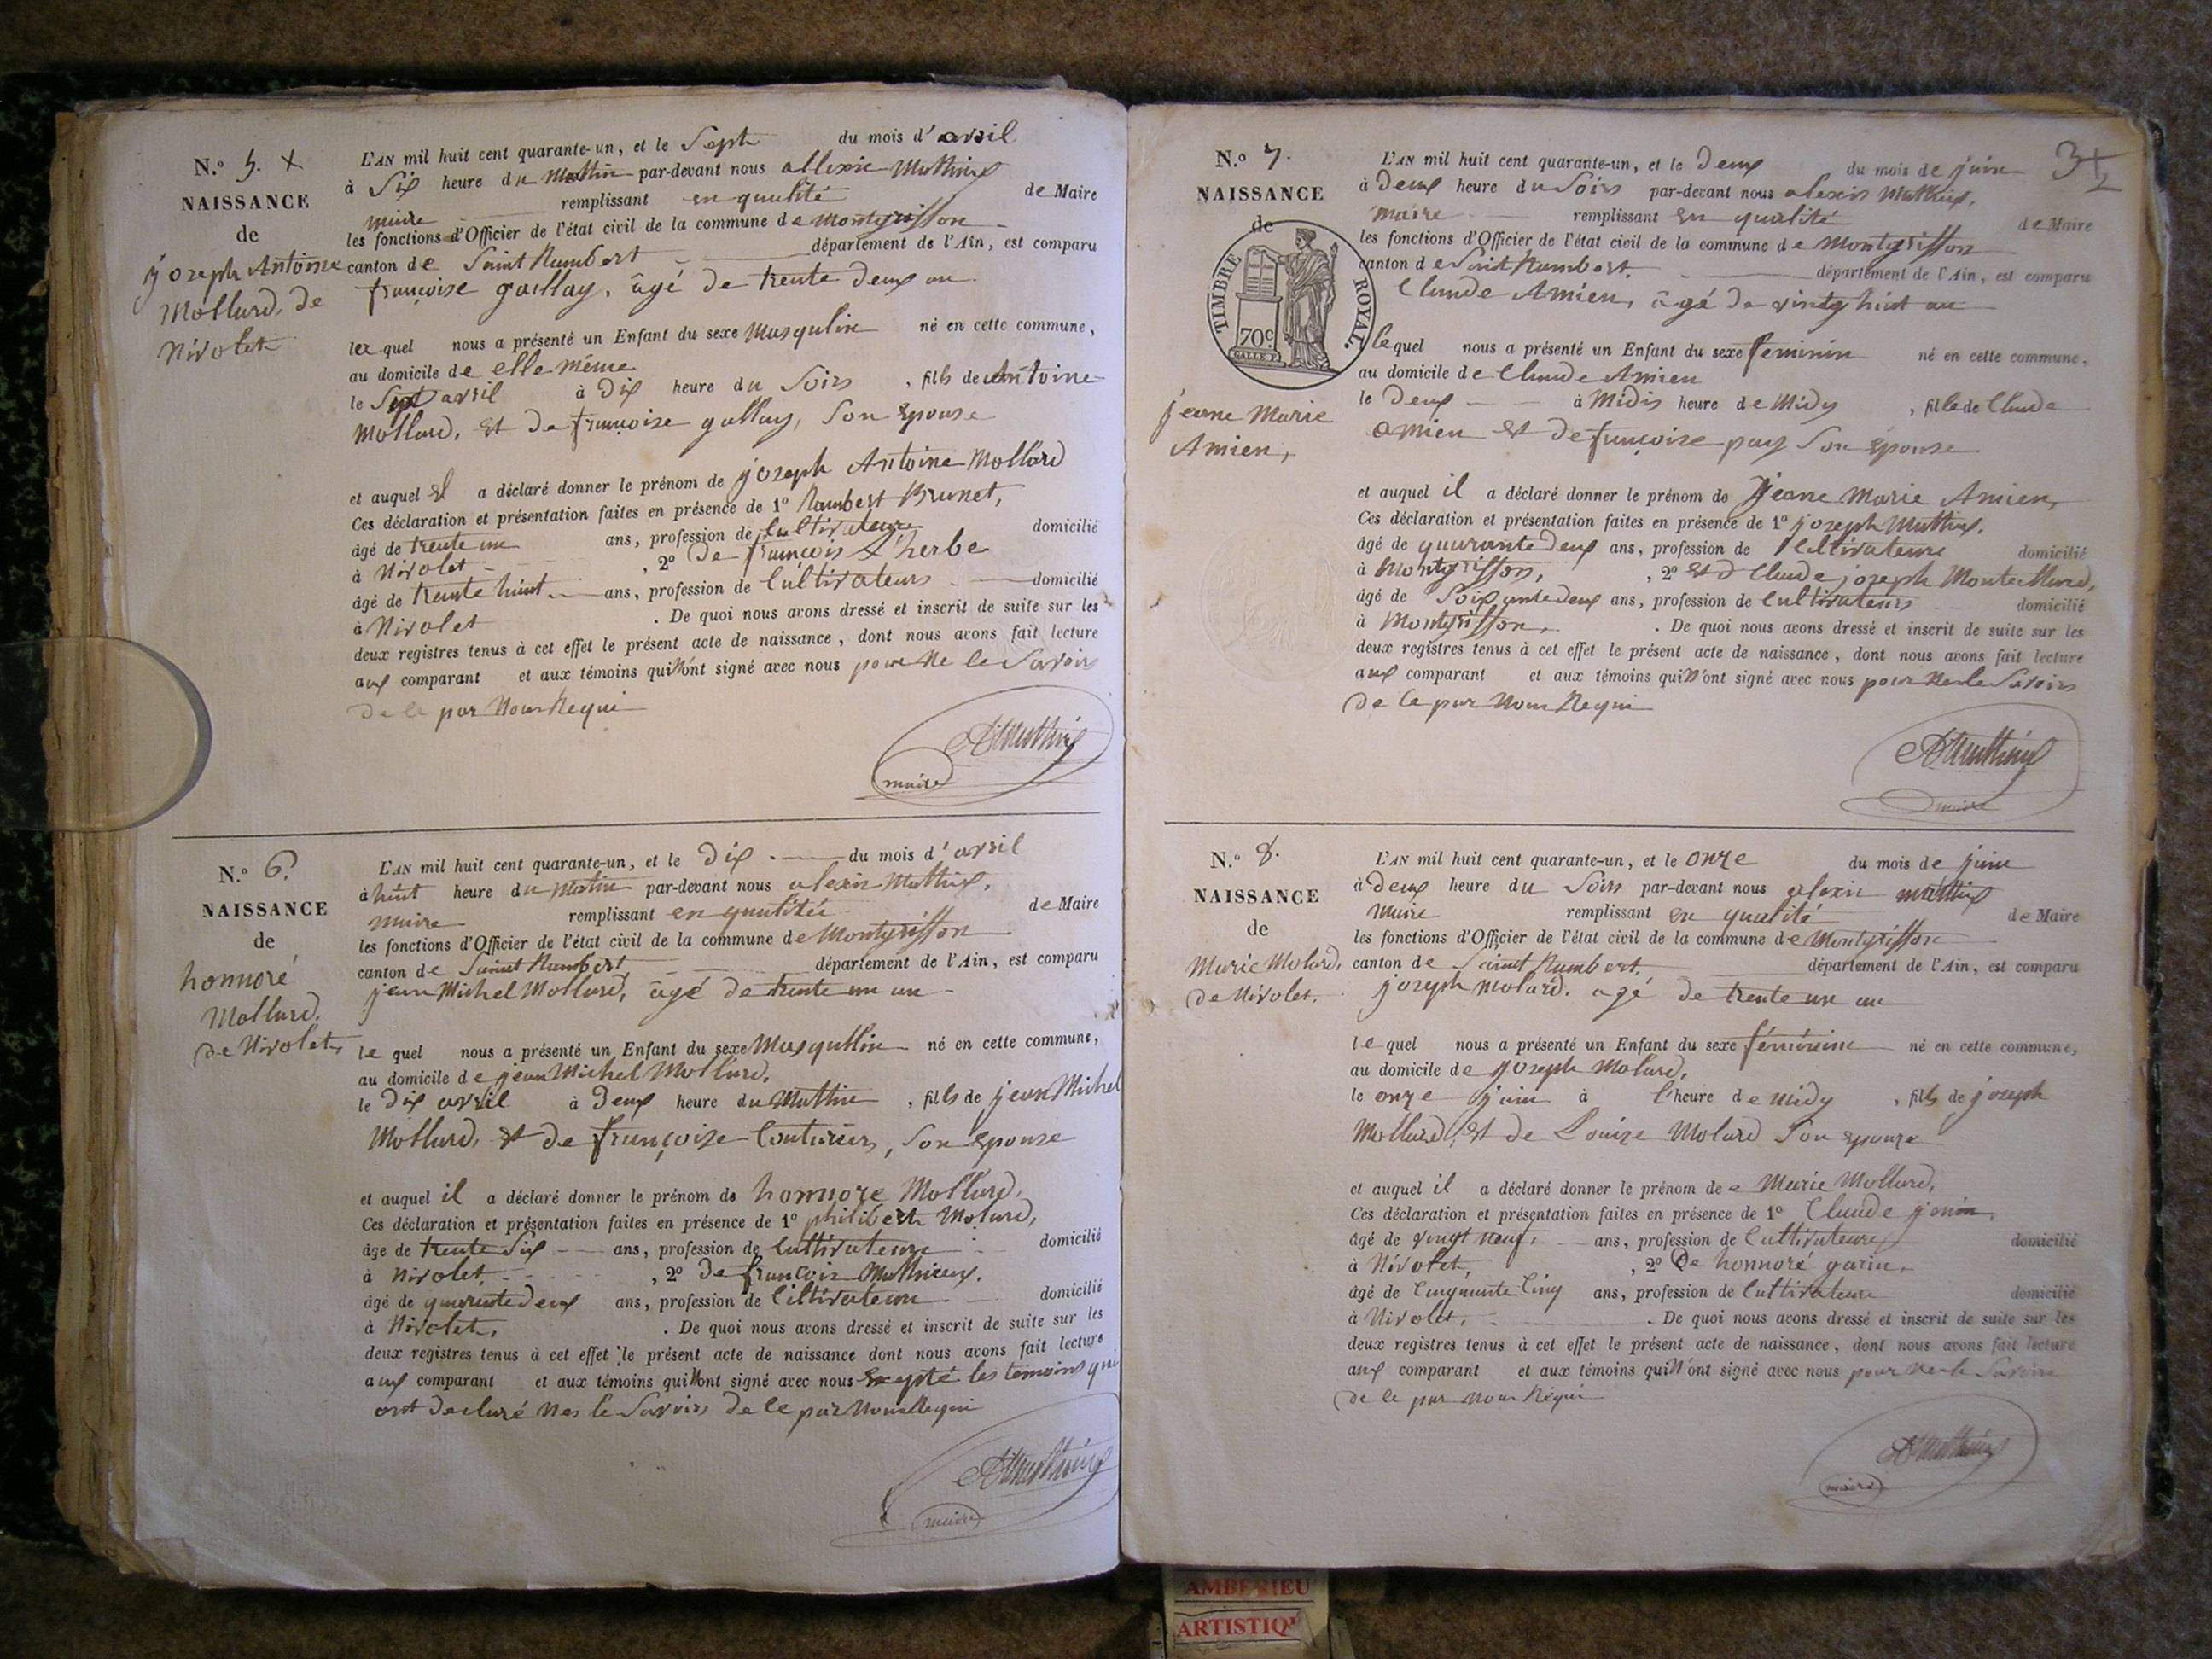 N.° 5. x
NAISSANCE
de
joseph Antoine
Mollard, de
Nivolet
L'AN mil huit cent quarante-un, et le Sept du mois d'avril
à Six heure du Mattin par-devant nous allexie Mathieux
maire remplissant en qualité de Maire
les fonctions d'Officier de l'état civil de la commune de Montgriffon
canton de Saint Rambert département de l'Ain, est comparu
françoise gallay, âgé de trente deux an
lequel nous a présenté un Enfant du sexe Masqulin né en cette commune,
au domicile de elle même
le Sept avril à Dix heure du Soirs, fils de Antoine
Mollard, et de françoise gallay, Son epouse
et auquel el a déclaré donner le prénom de joseph Antoine Mollard
Ces déclaration et présentation faites en présence de 1° Rambert Brunet,
âgé de trente un ans, profession de Cultivateure domicilié
à Nivolet, 2° De françois L'herbe
âgé de trente huit ans, profession de Cultivateurs domicilié
à Nivolet. De quoi nous avons dressé et inscrit de suite sur les
deux registres tenus à cet effet le présent acte de naissance, dont nous avons fait lecture
aux comparant et aux témoins qui N'ont signé avec nous pour Ne le Savoir
De ce par Nous Requi
AMathieux
maire
N.° 6.
NAISSANCE
de
honnoré
Mollard.
de Nivolet,
L'AN mil huit cent quarante-un, et le Dix du mois d'avril
à huit heure du Matin par-devant nous alexis Mathieux,
maire remplissant en qualitée de Maire
les fonctions d'Officier de l'état civil de la commune de Montgriffon
canton de Saint Rambert, département de l'Ain, est comparu
jean Michel Mollard, âgé de trente un an
le quel nous a présenté un Enfant du sexe Masqullin né en cette commune,
au domicile de jean Michel Mollard,
le Dix avril à Deux heure du Mattin, fils de jean Michel
Mollard, et de françoize Couturier, Son epouze
et auquel il a déclaré donner le prénom de honnoze Mollard,
Ces déclaration et présentation faites en présence de 1° philibert Molard,
âgé de trente Six ans, profession de Cultivateure domicilié
à Nivolet, 2° De françois Mathieux,
âgé de quarante deux ans, profession de Cultivateure domicilié
à Nivolet. De quoi nous avons dressé et inscrit de suite sur les
deux registres tenus à cet effet le présent acte de naissance dont nous avons fait lecture
aux comparant et aux témoins qui N'ont signé avec nous Excepté les temoins qui
ont declaré Nes le Savoir De ce par Nous Requi
AMathieux
maire
3
N.° 7.
NAISSANCE
de
TIMBRE ROYAL.
70c.
jeane Marie
Amien,
L'AN mil huit cent quarante-un, et le Deux du mois de juin
à Deux heure du Soirs par-devant nous alexis Mathieux,
maire remplissant en qualité de Maire
les fonctions d'Officier de l'état civil de la commune de Montgriffon
canton de Saint Rambert. département de l'Ain, est comparu
Claude Amien, âgé de vingt huit an
lequel nous a présenté un Enfant du sexe feminin né en cette commune,
au domicile de Claude Amien
le Deux à Midis heure de Midy, fille de Claude
Amien et de françoise pay Son Epouse
et auquel il a déclaré donner le prénom de Jeane Marie Amien,
Ces déclaration et présentation faites en présence de 1° joseph Mathieux,
âgé de quarante deux ans, profession de Cultivateure domicilié
à Montgriffon, 2° et D Claude joseph Montaillard,
âgé de Soixante deux ans, profession de Cultivateurs domicilié
à Montgriffon. De quoi nous avons dressé et inscrit de suite sur les
deux registres tenus à cet effet le présent acte de naissance, dont nous avons fait lecture
aux comparant et aux témoins qui N'ont signé avec nous pour Nes le Savoirs
De ce par Nous Requi
AMathieux
maire
N.° 8.
NAISSANCE
de
Marie Molard,
de Nivolet.
L'AN mil huit cent quarante-un, et le onze du mois de juin
à Deux heure du Soirs par-devant nous alexis mathieux
Maire remplissant en qualité de Maire
les fonctions d'Officier de l'état civil de la commune de Montgriffon
canton de Saint Rambert, département de l'Ain, est comparu
joseph Molard. agé de trente un an
lequel nous a présenté un Enfant du sexe féminine né en cette commune,
au domicile de Joseph Molard,
le onze juin à l'heure de midy, fils de joseph
Mollard, et de Louize Molard Son epouze
et auquel il a déclaré donner le prénom de Marie Mollard,
Ces déclaration et présentation faites en présence de 1° Claude
âgé de vingt neuf, ans, profession de Cultivateure domicilié
à Nivolet, 2° De honnoré garin,
âgé de Cinquante Cinq ans, profession de Cultivateure domicilié
à Nivolet. De quoi nous avons dressé et inscrit de suite sur les
deux registres tenus à cet effet le présent acte de naissance, dont nous avons fait lecture
aux comparant et aux témoins qui N'ont signé avec nous pour Ne le Savoire
De ce par Nous Réqui
AMathieux
maire
AMBERIEU
ARTISTIQ